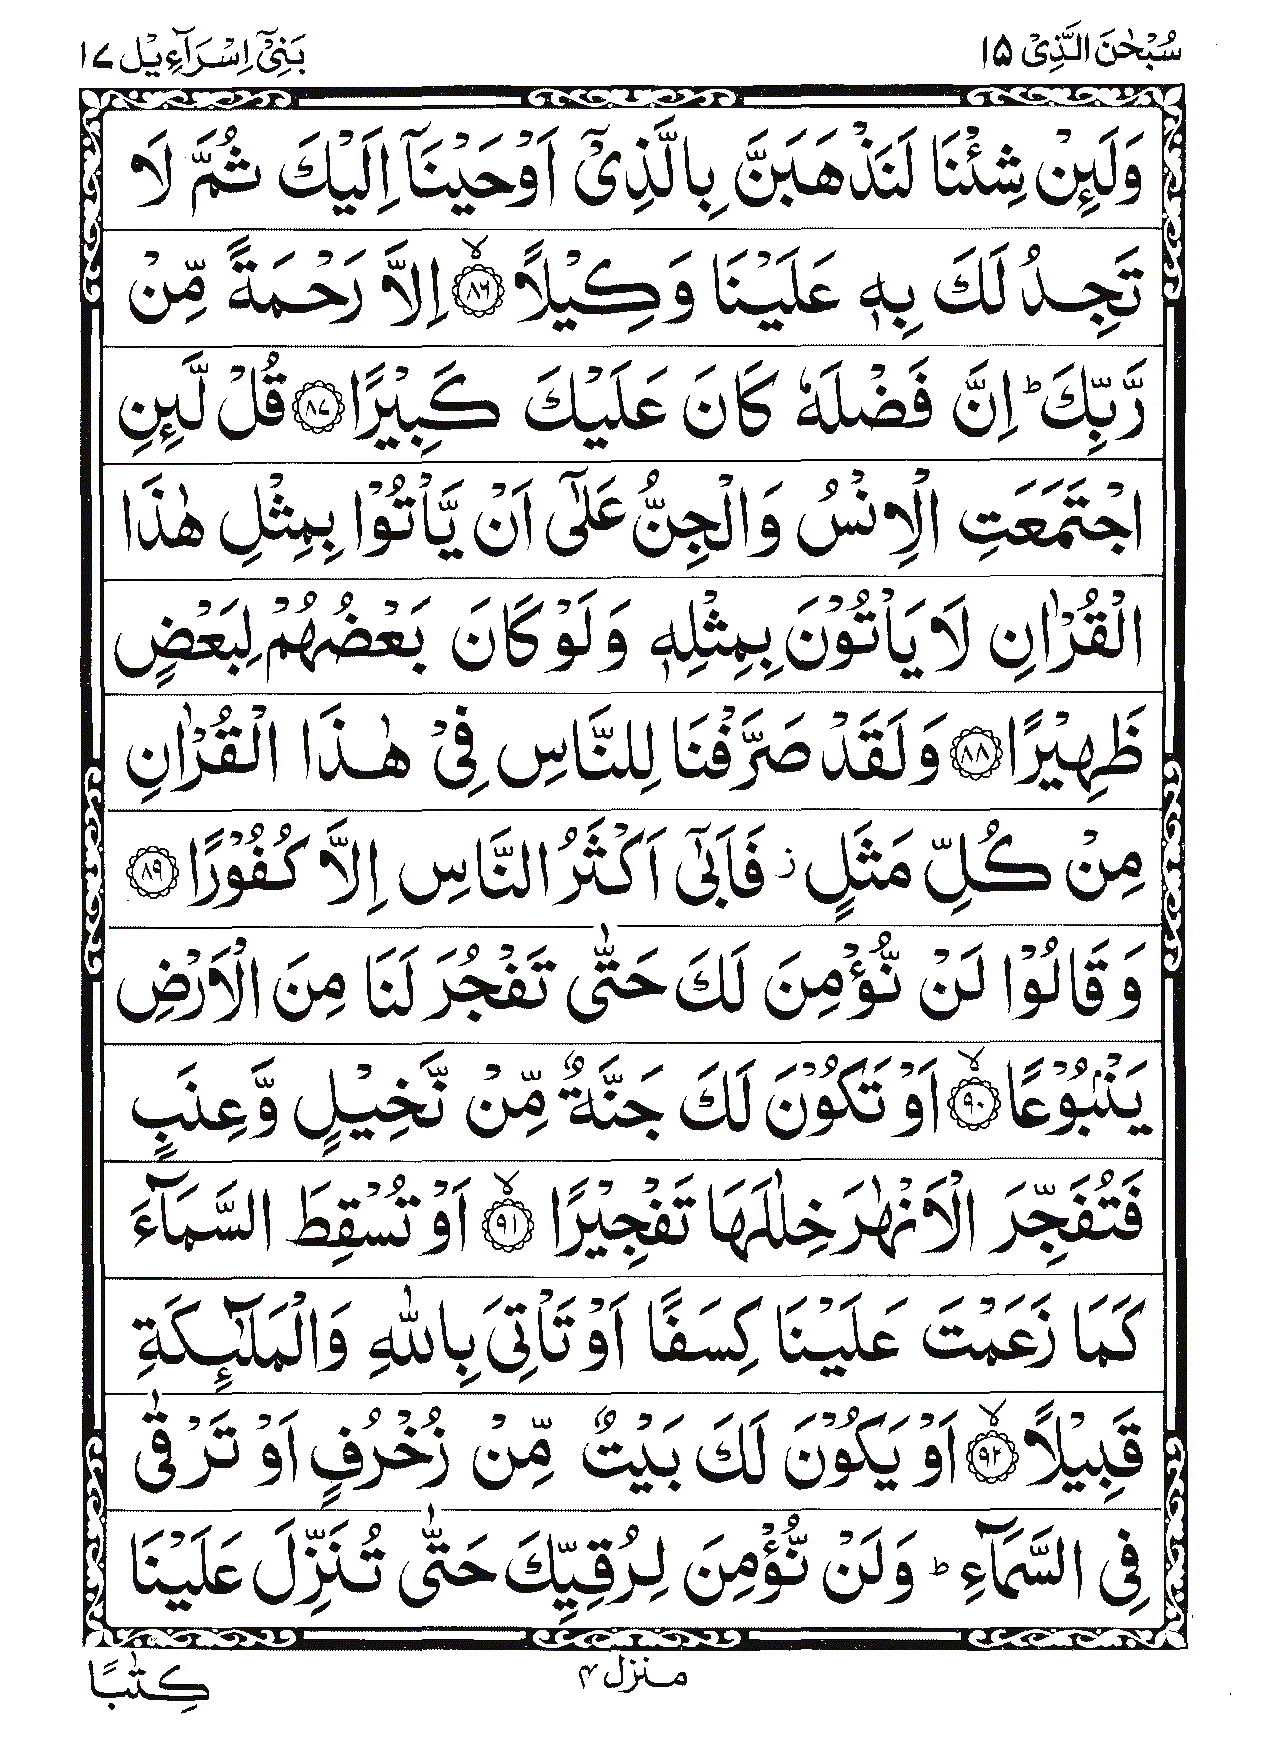 سُبْحٰنَ الَّذِیْ ۱۵
بَنِیْۤ اِسْرَآءِیْل ۱۷
وَلَىِٕنْ شِئْنَا لَنَذْهَبَنَّ بِالَّذِیْۤ اَوْحَیْنَاۤ اِلَیْكَ ثُمَّ لَا
تَجِدُ لَكَ بِهٖ عَلَیْنَا وَكِیْلًا ۙ﴿۸۶﴾ اِلَّا رَحْمَةً مِّنْ
رَّبِّكَ ؕ اِنَّ فَضْلَهٗ كَانَ عَلَیْكَ كَبِیْرًا ﴿۸۷﴾ قُلْ لَّىِٕنِ
اجْتَمَعَتِ الْاِنْسُ وَالْجِنُّ عَلٰۤی اَنْ یَّاْتُوْا بِمِثْلِ هٰذَا
الْقُرْاٰنِ لَا یَاْتُوْنَ بِمِثْلِهٖ وَلَوْ كَانَ بَعْضُهُمْ لِبَعْضٍ
ظَهِیْرًا ﴿۸۸﴾ وَلَقَدْ صَرَّفْنَا لِلنَّاسِ فِیْ هٰذَا الْقُرْاٰنِ
مِنْ كُلِّ مَثَلٍ ؗ فَاَبٰۤی اَكْثَرُ النَّاسِ اِلَّا كُفُوْرًا ﴿۸۹﴾
وَقَالُوْا لَنْ نُّؤْمِنَ لَكَ حَتّٰی تَفْجُرَ لَنَا مِنَ الْاَرْضِ
یَنْۢبُوْعًا ۙ﴿۹۰﴾ اَوْ تَكُوْنَ لَكَ جَنَّةٌ مِّنْ نَّخِیْلٍ وَّعِنَبٍ
فَتُفَجِّرَ الْاَنْهٰرَ خِلٰلَهَا تَفْجِیْرًا ۙ﴿۹۱﴾ اَوْ تُسْقِطَ السَّمَآءَ
كَمَا زَعَمْتَ عَلَیْنَا كِسَفًا اَوْ تَاْتِیَ بِاللّٰهِ وَالْمَلٰٓىِٕكَةِ
قَبِیْلًا ۙ﴿۹۲﴾ اَوْ یَكُوْنَ لَكَ بَیْتٌ مِّنْ زُخْرُفٍ اَوْ تَرْقٰی
فِی السَّمَآءِ ؕ وَلَنْ نُّؤْمِنَ لِرُقِیِّكَ حَتّٰی تُنَزِّلَ عَلَیْنَا
منزل ۴
كِتٰبًا